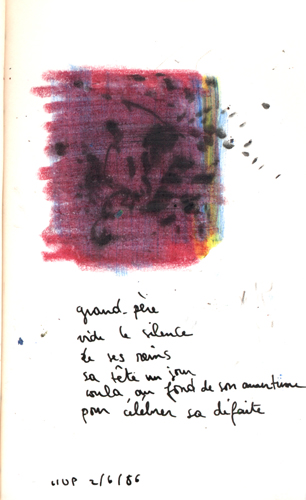 grand-père
vide le silence
de ses reins
sa tête un jour
coula au fond de son amertume
pour célébrer sa défaite
2/6/86